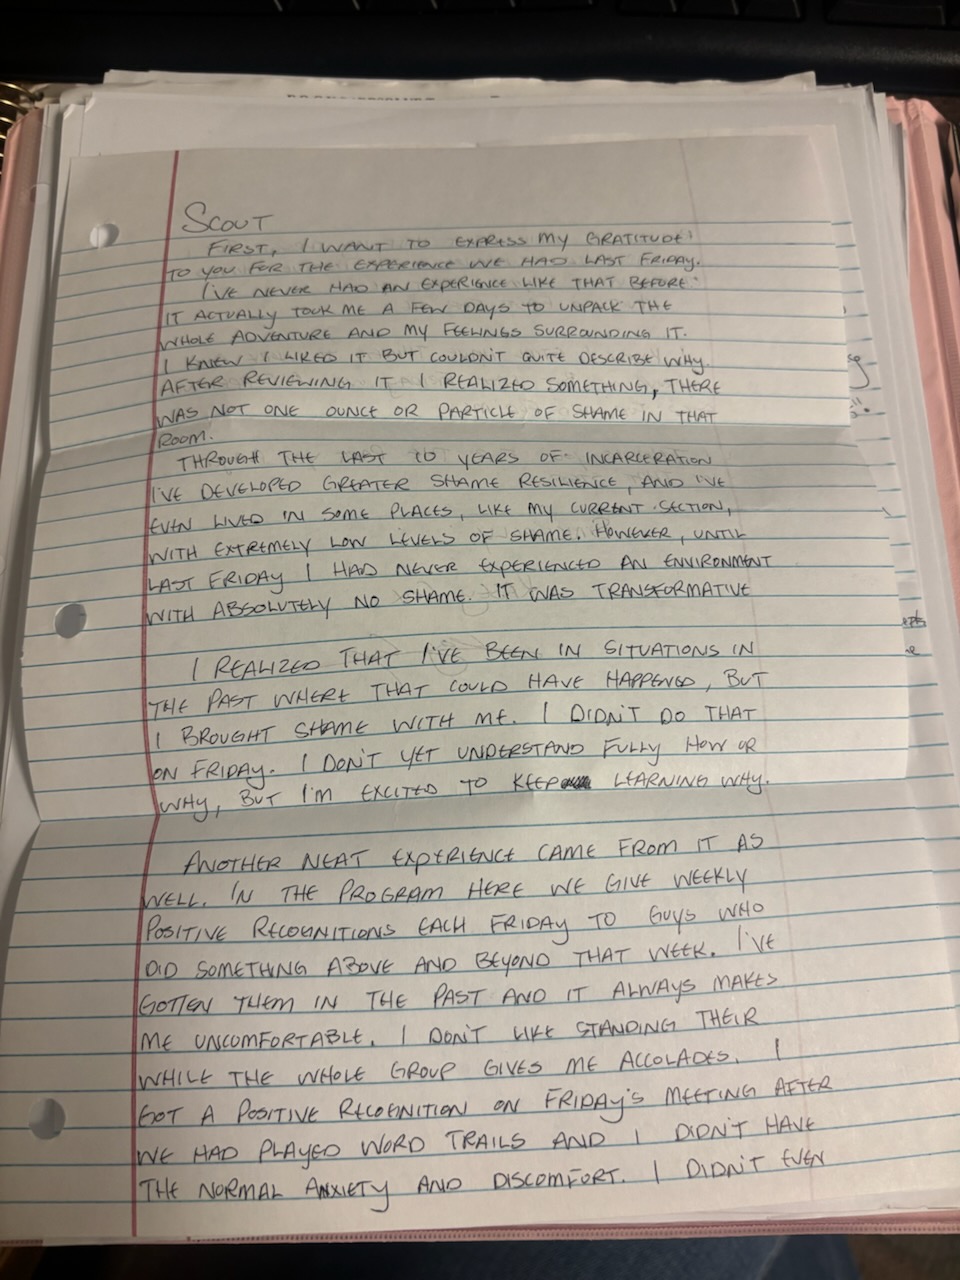 SCOUT
FIRST, I WANT TO EXPRESS MY GRATITUDE
TO YOU FOR THE EXPERIENCE WE HAD LAST FRIDAY.
I'VE NEVER HAD AN EXPERIENCE LIKE THAT BEFORE.
IT ACTUALLY TOOK ME A FEW DAYS TO UNPACK THE
WHOLE ADVENTURE AND MY FEELINGS SURROUNDING IT.
I KNEW I LIKED IT BUT COULDN'T QUITE DESCRIBE WHY.
AFTER REVIEWING IT I REALIZED SOMETHING, THERE
WAS NOT ONE OUNCE OR PARTICLE OF SHAME IN THAT
ROOM.
THROUGH THE LAST 10 YEARS OF INCARCERATION
I'VE DEVELOPED GREATER SHAME RESILIENCE, AND I'VE
EVEN LIVED IN SOME PLACES, LIKE MY CURRENT SECTION,
WITH EXTREMELY LOW LEVELS OF SHAME. HOWEVER, UNTIL
LAST FRIDAY I HAD NEVER EXPERIENCED AN ENVIRONMENT
WITH ABSOLUTELY NO SHAME. IT WAS TRANSFORMATIVE
I REALIZED THAT I'VE BEEN IN SITUATIONS IN
THE PAST WHERE THAT COULD HAVE HAPPENED, BUT
I BROUGHT SHAME WITH ME. I DIDN'T DO THAT
ON FRIDAY. I DON'T YET UNDERSTAND FULLY HOW OR
WHY, BUT I'M EXCITED TO KEEP LEARNING WHY.
ANOTHER NEAT EXPERIENCE CAME FROM IT AS
WELL. IN THE PROGRAM HERE WE GIVE WEEKLY
POSITIVE RECOGNITIONS EACH FRIDAY TO GUYS WHO
DID SOMETHING ABOVE AND BEYOND THAT WEEK. I'VE
GOTTEN THEM IN THE PAST AND IT ALWAYS MAKES
ME UNCOMFORTABLE. I DON'T LIKE STANDING THEIR
WHILE THE WHOLE GROUP GIVES ME ACCOLADES. I
GOT A POSITIVE RECOGNITION ON FRIDAY'S MEETING AFTER
WE HAD PLAYED WORD TRAILS AND I DIDN'T HAVE
THE NORMAL ANXIETY AND DISCOMFORT. I DIDN'T EVEN